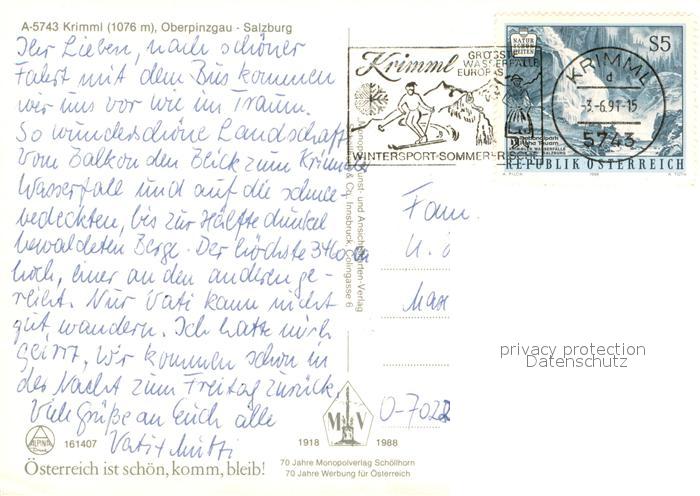 A-5743 Krimml (1076 m), Oberpinzgau - Salzburg
Ihr Lieben, nach schöner
Fahrt mit dem Bus kommen
wir uns vor wie im Traum.
So wunderschöne Landschaft
Vom Balkon den Blick zum Krimmler
Wasserfall und auf die schnee-
bedeckten, bis zur Hälfte dunkel
bewaldeten Berge. Der höchste 3460 m
hoch, einer an den anderen ge-
reiht. Nur Vati kann nicht
gut wandern. Ich hatte mich
geirrt, wir kommen schon in
der Nacht zum Freitag zurück.
Viele Grüße an Euch alle
Vati + Mutti
ALPINA
161407
Österreich ist schön, komm, bleib!
1918 MV 1988
70 Jahre Monopolverlag Schöllhorn
70 Jahre Werbung für Österreich
Monopol Kunst- und Ansichtskarten-Verlag
& Co., Innsbruck, Colingasse 6
Krimml
GRÖSSTE
WASSERFÄLLE
EUROPAS
WINTERSPORT-SOMMER-
KRIMML
d
-3.-6.91-15
5743
NATUR
SCHÖN
HEITEN
S5
REPUBLIK ÖSTERREICH
Fam.
O-7022
privacy protection
Datenschutz